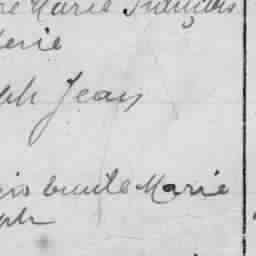 re Marie François
erie
ph Jean
Marie
ph